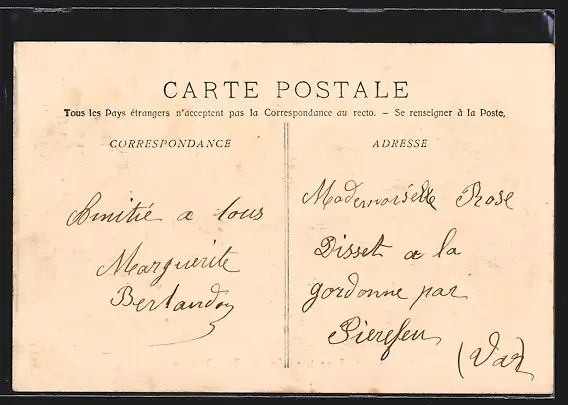 CARTE POSTALE
Tous les Pays étrangers n'acceptent pas la Correspondance au recto. - Se renseigner à la Poste.
CORRESPONDANCE
Amitié a tous
Marguerite
Bertandon
ADRESSE
Mademoiselle Rose
Disset a la
gordonne par
Pierefeu
(Var)